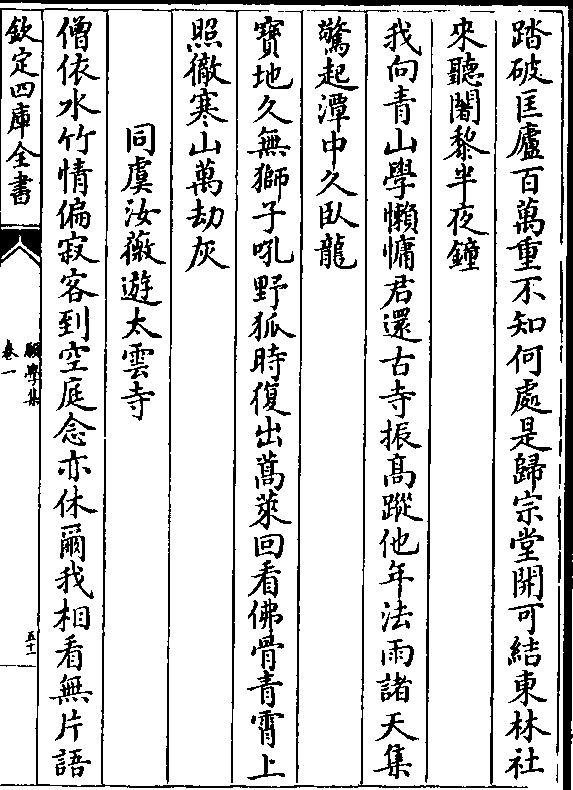 踏破匡廬百萬重不知何處是歸宗堂開可結東林社
來聽闍黎半夜鐘
我向青山學懶慵君還古寺振髙蹤他年法雨諸天集
驚起潭中久臥龍
寶地久無獅子吼野狐時復出蒿萊回看佛骨青霄上
照徹寒山萬劫灰
同虞汝薇遊太雲寺
僧依水竹情偏寂客到空庭念亦休爾我相看無片語
欽定四庫全書
願學集
卷一
五十一